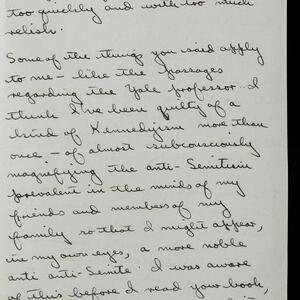 too quickly and with too much
relish.
Some of the things you said apply
to me - like the passages
regarding the Yale professor. I
think I've been guilty of a
kind of Kennedyism more than
once - of almost subconsciously
magnifying the anti-Semitism
prevalent in the minds of my
friends and members of my
family so that I might appear,
in my own eyes, a more noble
anti anti-Semite. I was aware
of this before I read your book,